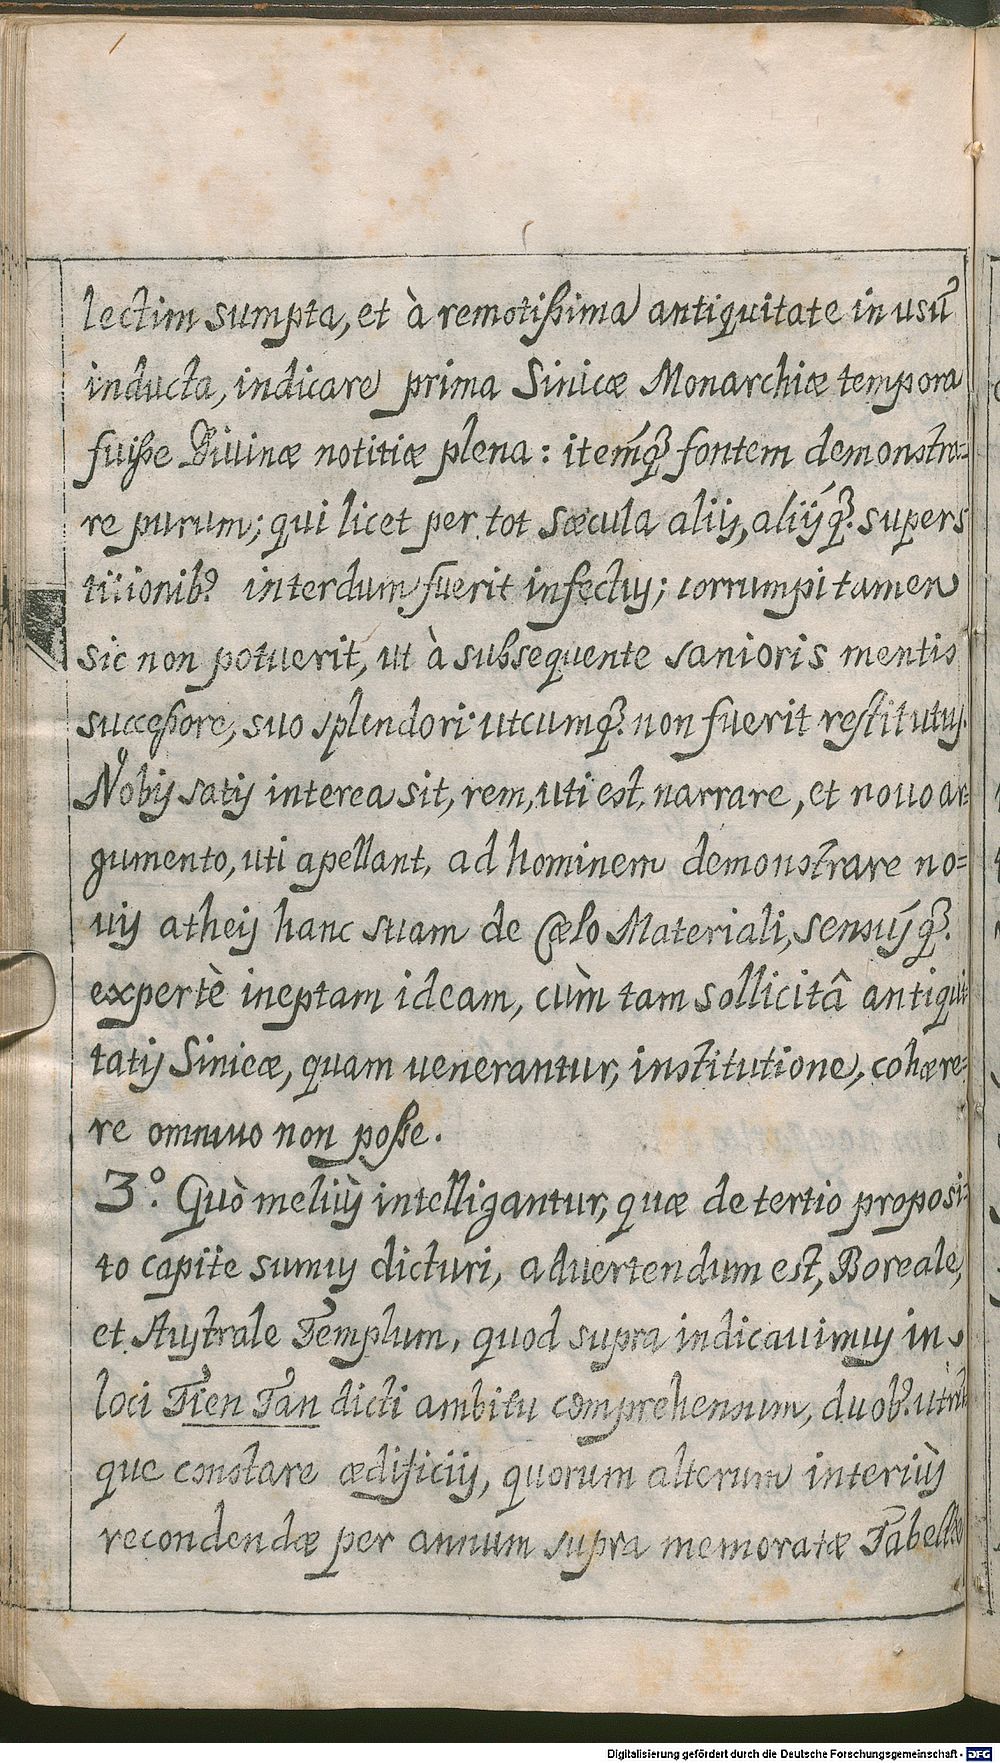 lectim sumpta, et à remotißima antiquitate in usũ
inducta, indicare prima Sinicæ Monarchiæ tempora
fuiße Divinæ notitiæ plena: itemq́3 fontem demonstra=
re purum; qui licet per tot sæcula aliis, aliisq́3. supers
titionib9 interdum fuerit infectus; corrumpi tamen
sic non potuerit, ut à subsequente sanioris mentis
succeßore, suo splendori utcumq3. non fuerit restitutus.
Nobis satis interea sit, rem, uti est, narrare, et nouo ar=
gumento, uti apellant, ad hominem demonstrare no=
uis atheis hanc suam de Cælo Materiali, sensusq́3.
expertè ineptam ideam, cùm tam sollicitâ antiqui
tatis Sinicæ, quam uenerantur, institutione, cohære=
re omnino non poße.
3.º Quò meliùs intelligantur, quæ de tertio proposi=
to capite sumus dicturi, aduertendum est, Boreale,
et Australe Templum, quod supra indicauimus in
loci Tien Tan dicti ambitu comprehensum, duob9. utrũ
que constare ædificiis, quorum alterum interiùs
recondendæ per annum supra memoratæ Tabellæ
Digitalisierung gefördert durch die Deutsche Forschungsgemeinschaft - DFG